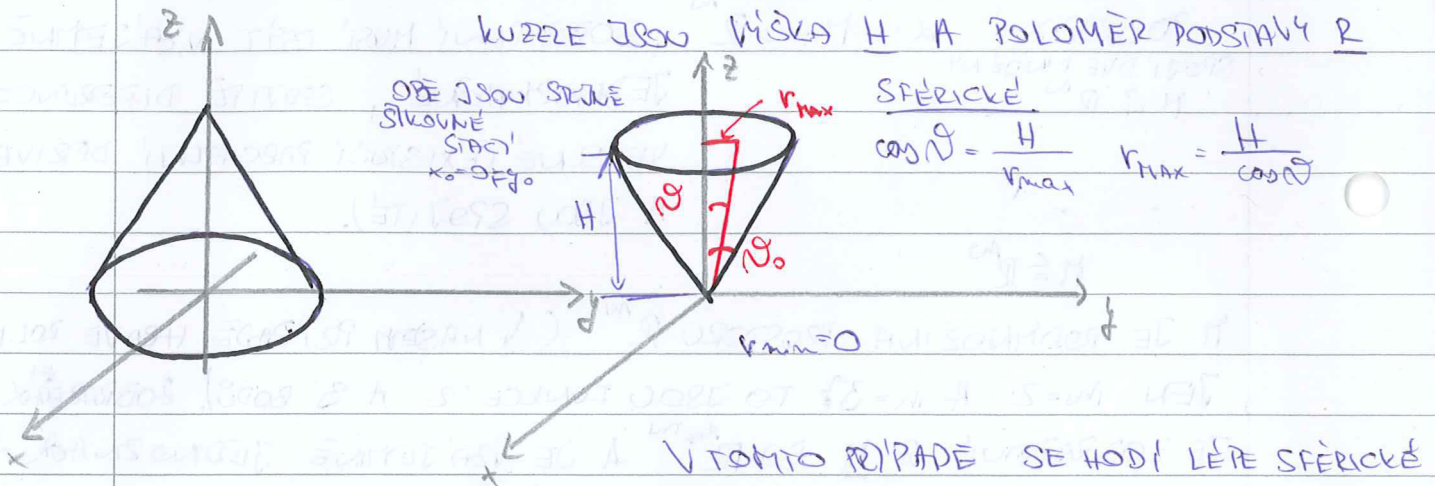 KUŽELE JSOU VÝŠKA H A POLOMĚR PODSTAVY R
OBĚ JSOU STEJNĚ
ŠIKOVNÉ
STAČÍ
x₀=0=y₀
z
z
r MAX
SFÉRICKÉ
cos ϑ = H / r max
r MAX = H / cos ϑ
H
ϑ
ϑ₀
y
y
r min = 0
x
x
V TOMTO PŘÍPADĚ SE HODÍ LÉPE SFÉRICKÉ